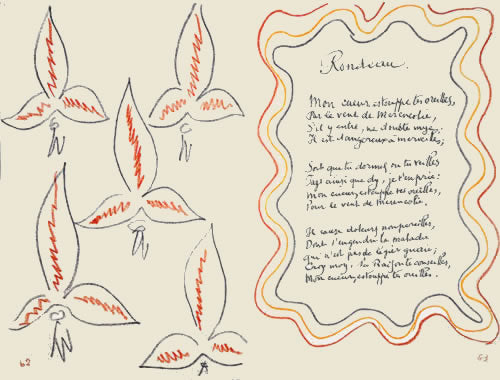 Rondeau.
Mon cueur estouppe tes oreilles,
Pour le vent de Mérencolie,
S'il y entre, ne doubte mye,
Il est dangereux à merveilles;
Soit que tu dormes ou tu veilles
Fays ainsi que dy, je t'en prie:
Mon cueur, estouppe tes oreilles,
Pour le vent de mérencolie.
Il cause doleurs nonpareilles,
Dont s'engendre la maladie
qui n'est pas de légier guérie;
Croy moy, se Raison te conseilles,
Mon cueur, estouppe tes oreilles.
62
63